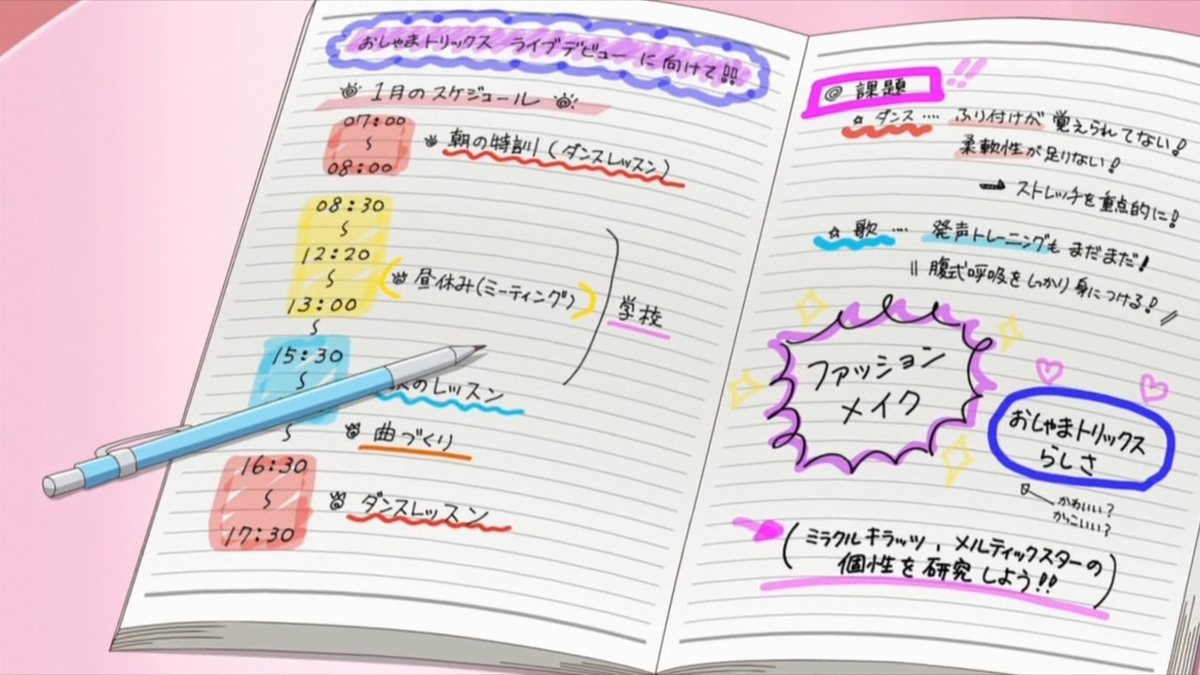 おしゃまトリックス ライブデビューに向けて!!
1月のスケジュール
07:00
~
08:00
朝の特訓(ダンスレッスン)
08:30
~
12:20
~
13:00
~
昼休み(ミーティング)
学校
15:30
~
のレッスン
~
曲づくり
16:30
~
17:30
ダンスレッスン
◎ 課題 !!
☆ ダンス … ふり付けが覚えられてない!
柔軟性が足りない!
→ ストレッチを重点的に!
☆ 歌 … 発声トレーニングもまだまだ!
|| 腹式呼吸をしっかり身につける! //
ファッション
メイク
おしゃまトリックス
らしさ
かわいい?
かっこいい?
→ (ミラクルキラッツ、メルティックスターの
個性を研究しよう!!)